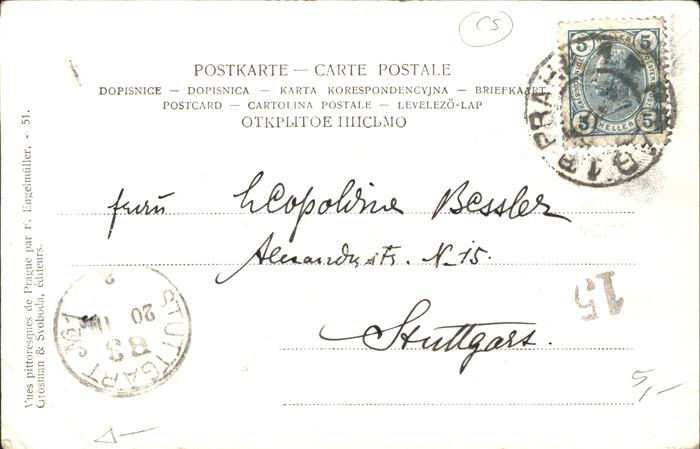 CS
POSTKARTE — CARTE POSTALE
DOPISNICE — DOPISNICA — KARTA KORESPONDENCYJNA — BRIEFKAART
POSTCARD — CARTOLINA POSTALE — LEVELEZŐ-LAP
ОТКРЫТОЕ ПИСЬМО
5 HELLER 5
5 HELLER 5
PRAG
Leopoldine Bessler
N-15.
Stuttgart.
15
5,-
STUTTGART
20
83
Vues pittoresques de Prague par F. Engelmüller. - 51.
Grosman & Svoboda, éditeurs.